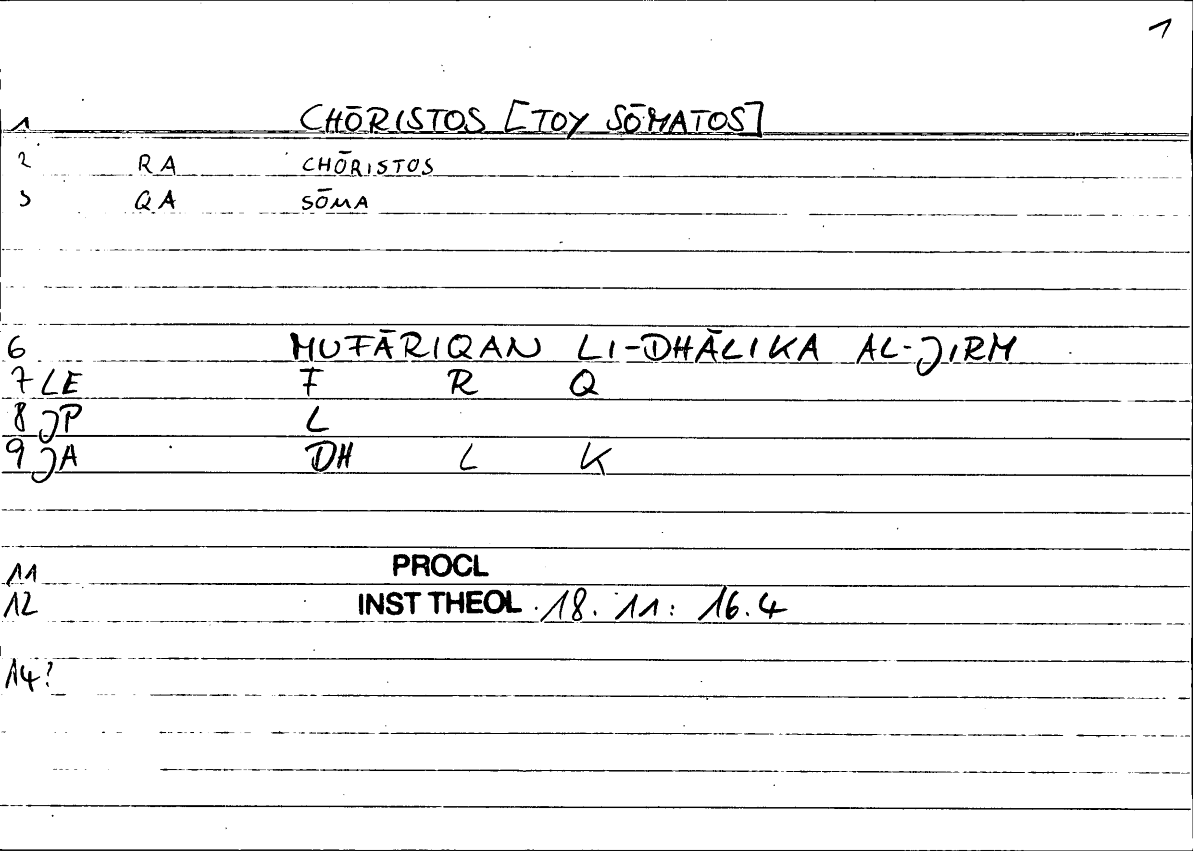 1
1 CHŌRISTOS [TOY SŌMATOS]
2 RA CHŌRISTOS
3 QA SŌMA
6 MUFĀRIQAN LI-DHĀLIKA AL-JIRM
7 LE F R Q
8 JP L
9 JA DH L K
11 PROCL
12 INST THEOL 18. 11: 16.4
14?